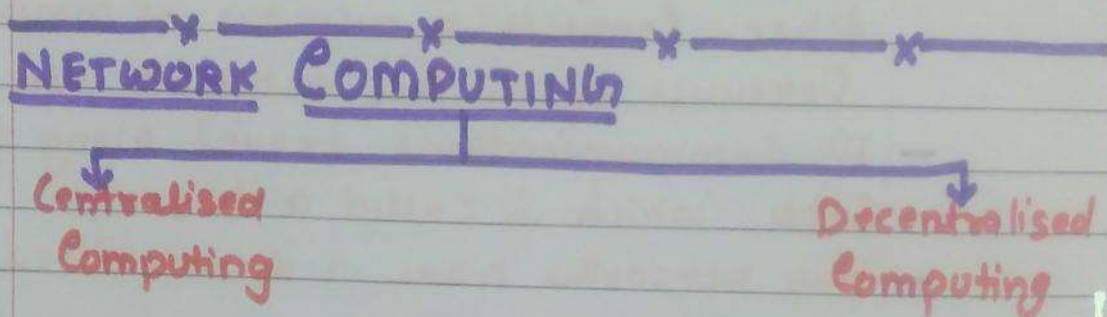 NETWORK COMPUTING
Centralised
Computing
Decentralised
Computing